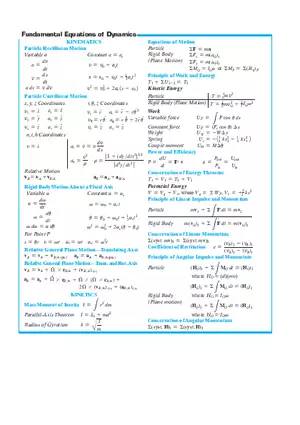 Fundamental Equations of Dynamics
KINEMATICS
Particle Rectilinear Motion
Variable a    Constant a = a_c
a = dv/dt    v = v₀ + a_c t
v = ds/dt    s = s₀ + v₀t + ½a_c t²
a ds = v dv    v² = v₀² + 2a_c(s − s₀)
Particle Curvilinear Motion
x, y, z Coordinates    r, θ, z Coordinates
v_x = ẋ   a_x = ẍ    v_r = ṙ   a_r = r̈ − rθ̇²
v_y = ẏ   a_y = ÿ    v_θ = rθ̇   a_θ = rθ̈ + 2ṙθ̇
v_z = ż   a_z = z̈    v_z = ż   a_z = z̈
n, t, b Coordinates
v = ṡ    a_t = v̇ = v dv/ds
a_n = v²/ρ   ρ = [1 + (dy/dx)²]^3/2 / |d²y/dx²|
Relative Motion
v_B = v_A + v_B/A    a_B = a_A + a_B/A
Rigid Body Motion About a Fixed Axis
Variable α    Constant α = α_c
α = dω/dt    ω = ω₀ + α_c t
ω = dθ/dt    θ = θ₀ + ω₀t + ½α_c t²
ω dω = α dθ    ω² = ω₀² + 2α_c(θ − θ₀)
For Point P
s = θr   v = ωr   a_t = αr   a_n = ω²r
Relative General Plane Motion—Translating Axes
v_B = v_A + v_B/A(pin)    a_B = a_A + a_B/A(pin)
Relative General Plane Motion—Trans. and Rot. Axis
v_B = v_A + Ω × r_B/A + (v_B/A)_xyz
a_B = a_A + Ω̇ × r_B/A + Ω × (Ω × r_B/A) +
2Ω × (v_B/A)_xyz + (a_B/A)_xyz
KINETICS
Mass Moment of Inertia   I = ∫ r² dm
Parallel-Axis Theorem   I = I_G + md²
Radius of Gyration   k = √(I/m)
Equations of Motion
Particle   ΣF = ma
Rigid Body   ΣF_x = m(a_G)_x
(Plane Motion)   ΣF_y = m(a_G)_y
ΣM_G = I_Gα or ΣM_P = Σ(ℳ_k)_P
Principle of Work and Energy
T₁ + ΣU₁₋₂ = T₂
Kinetic Energy
Particle   T = ½mv²
Rigid Body (Plane Motion)   T = ½mv_G² + ½I_Gω²
Work
Variable force   U_F = ∫ F cos θ ds
Constant force   U_F = (F_c cos θ) Δs
Weight   U_W = −W Δy
Spring   U_s = −(½ks₂² − ½ks₁²)
Couple moment   U_M = M Δθ
Power and Efficiency
P = dU/dt = F · v   ε = P_out/P_in = U_out/U_in
Conservation of Energy Theorem
T₁ + V₁ = T₂ + V₂
Potential Energy
V = V_g + V_e, where V_g = ±Wy, V_e = +½ks²
Principle of Linear Impulse and Momentum
Particle   mv₁ + Σ∫F dt = mv₂
Rigid Body   m(v_G)₁ + Σ∫F dt = m(v_G)₂
Conservation of Linear Momentum
Σ(syst. mv)₁ = Σ(syst. mv)₂
Coefficient of Restitution   e = (v_B)₂ − (v_A)₂ / (v_A)₁ − (v_B)₁
Principle of Angular Impulse and Momentum
Particle   (H_O)₁ + Σ∫M_O dt = (H_O)₂
where H_O = (d)(mv)
Rigid Body   (H_G)₁ + Σ∫M_G dt = (H_G)₂
(Plane motion)   where H_G = I_Gω
(H_O)₁ + Σ∫M_O dt = (H_O)₂
where H_O = I_Oω
Conservation of Angular Momentum
Σ(syst. H)₁ = Σ(syst. H)₂